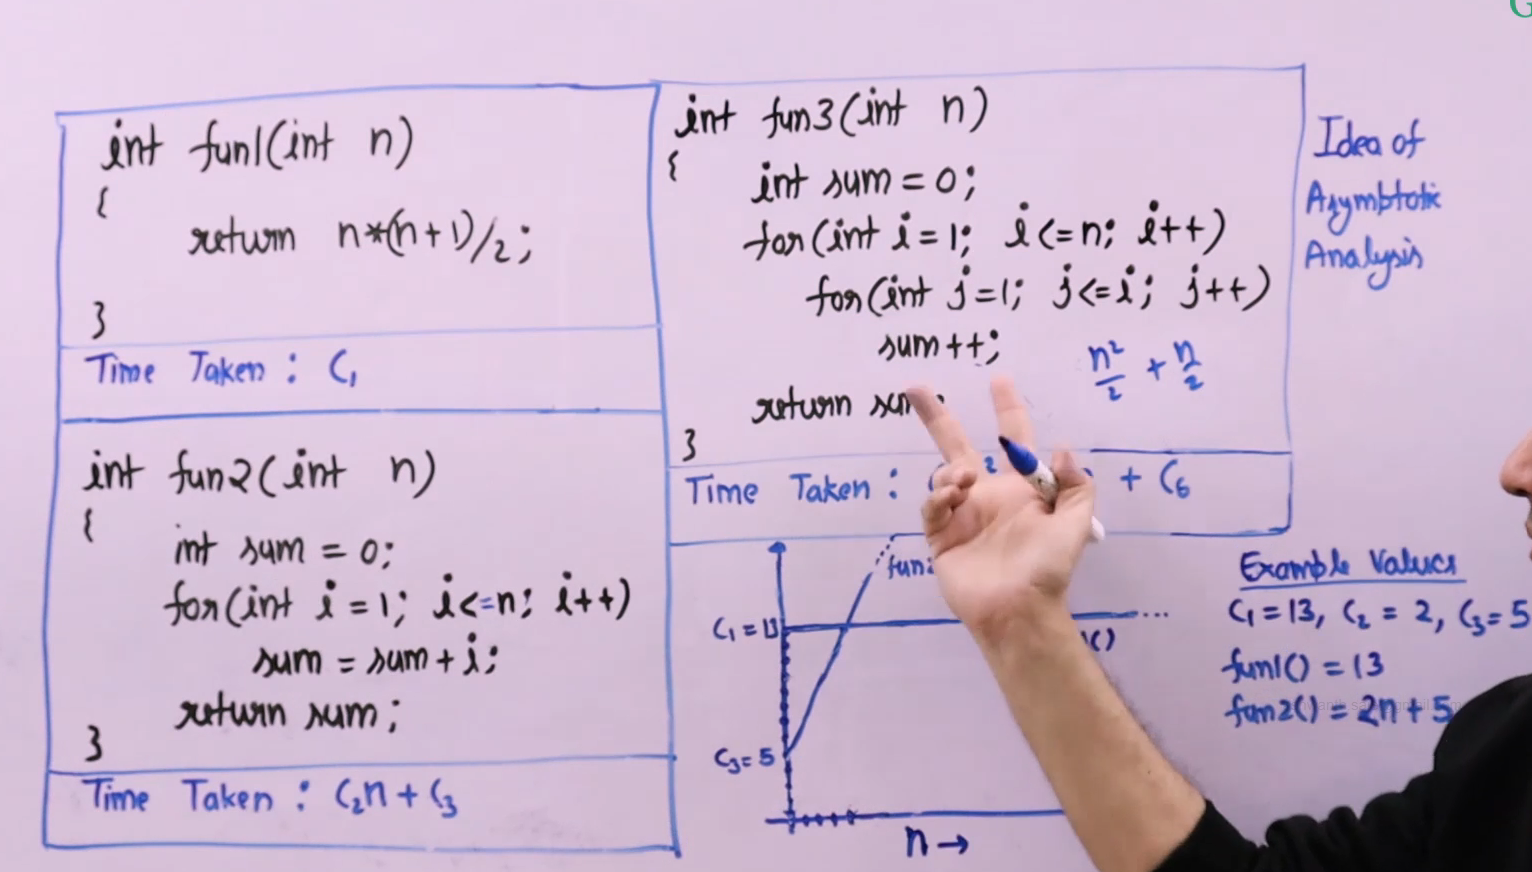 G
int fun1(int n)
{
return n*(n+1)/2;
}
Time Taken : C₁
int fun2(int n)
{
int sum = 0;
for(int i = 1; i<=n; i++)
sum = sum + i;
return sum;
}
Time Taken : C₂n + C₃
int fun3(int n)
{
int sum = 0;
for(int i = 1; i<=n; i++)
for(int j=1; j<=i; j++)
sum++;
return
}
n²/2 + n/2
Time Taken : + C₆
Idea of
Asymptotic
Analysis
C₁ = 13
C₃ = 5
n →
Example Values
C₁ = 13, C₂ = 2, C₃ = 5
fun1() = 13
fun2() = 2n + 5